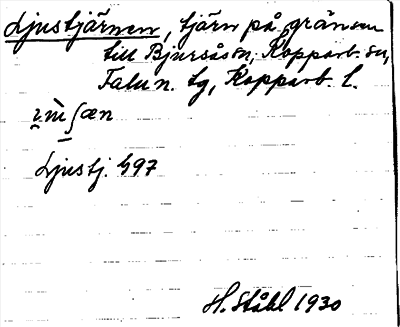 Ljustjärnen, tjärn på gränsen
till Bjursås sn, Kopparb. sn,
Falu n. tg, Kopparb. l.
Ljustj. 497
H. Ståhl 1930